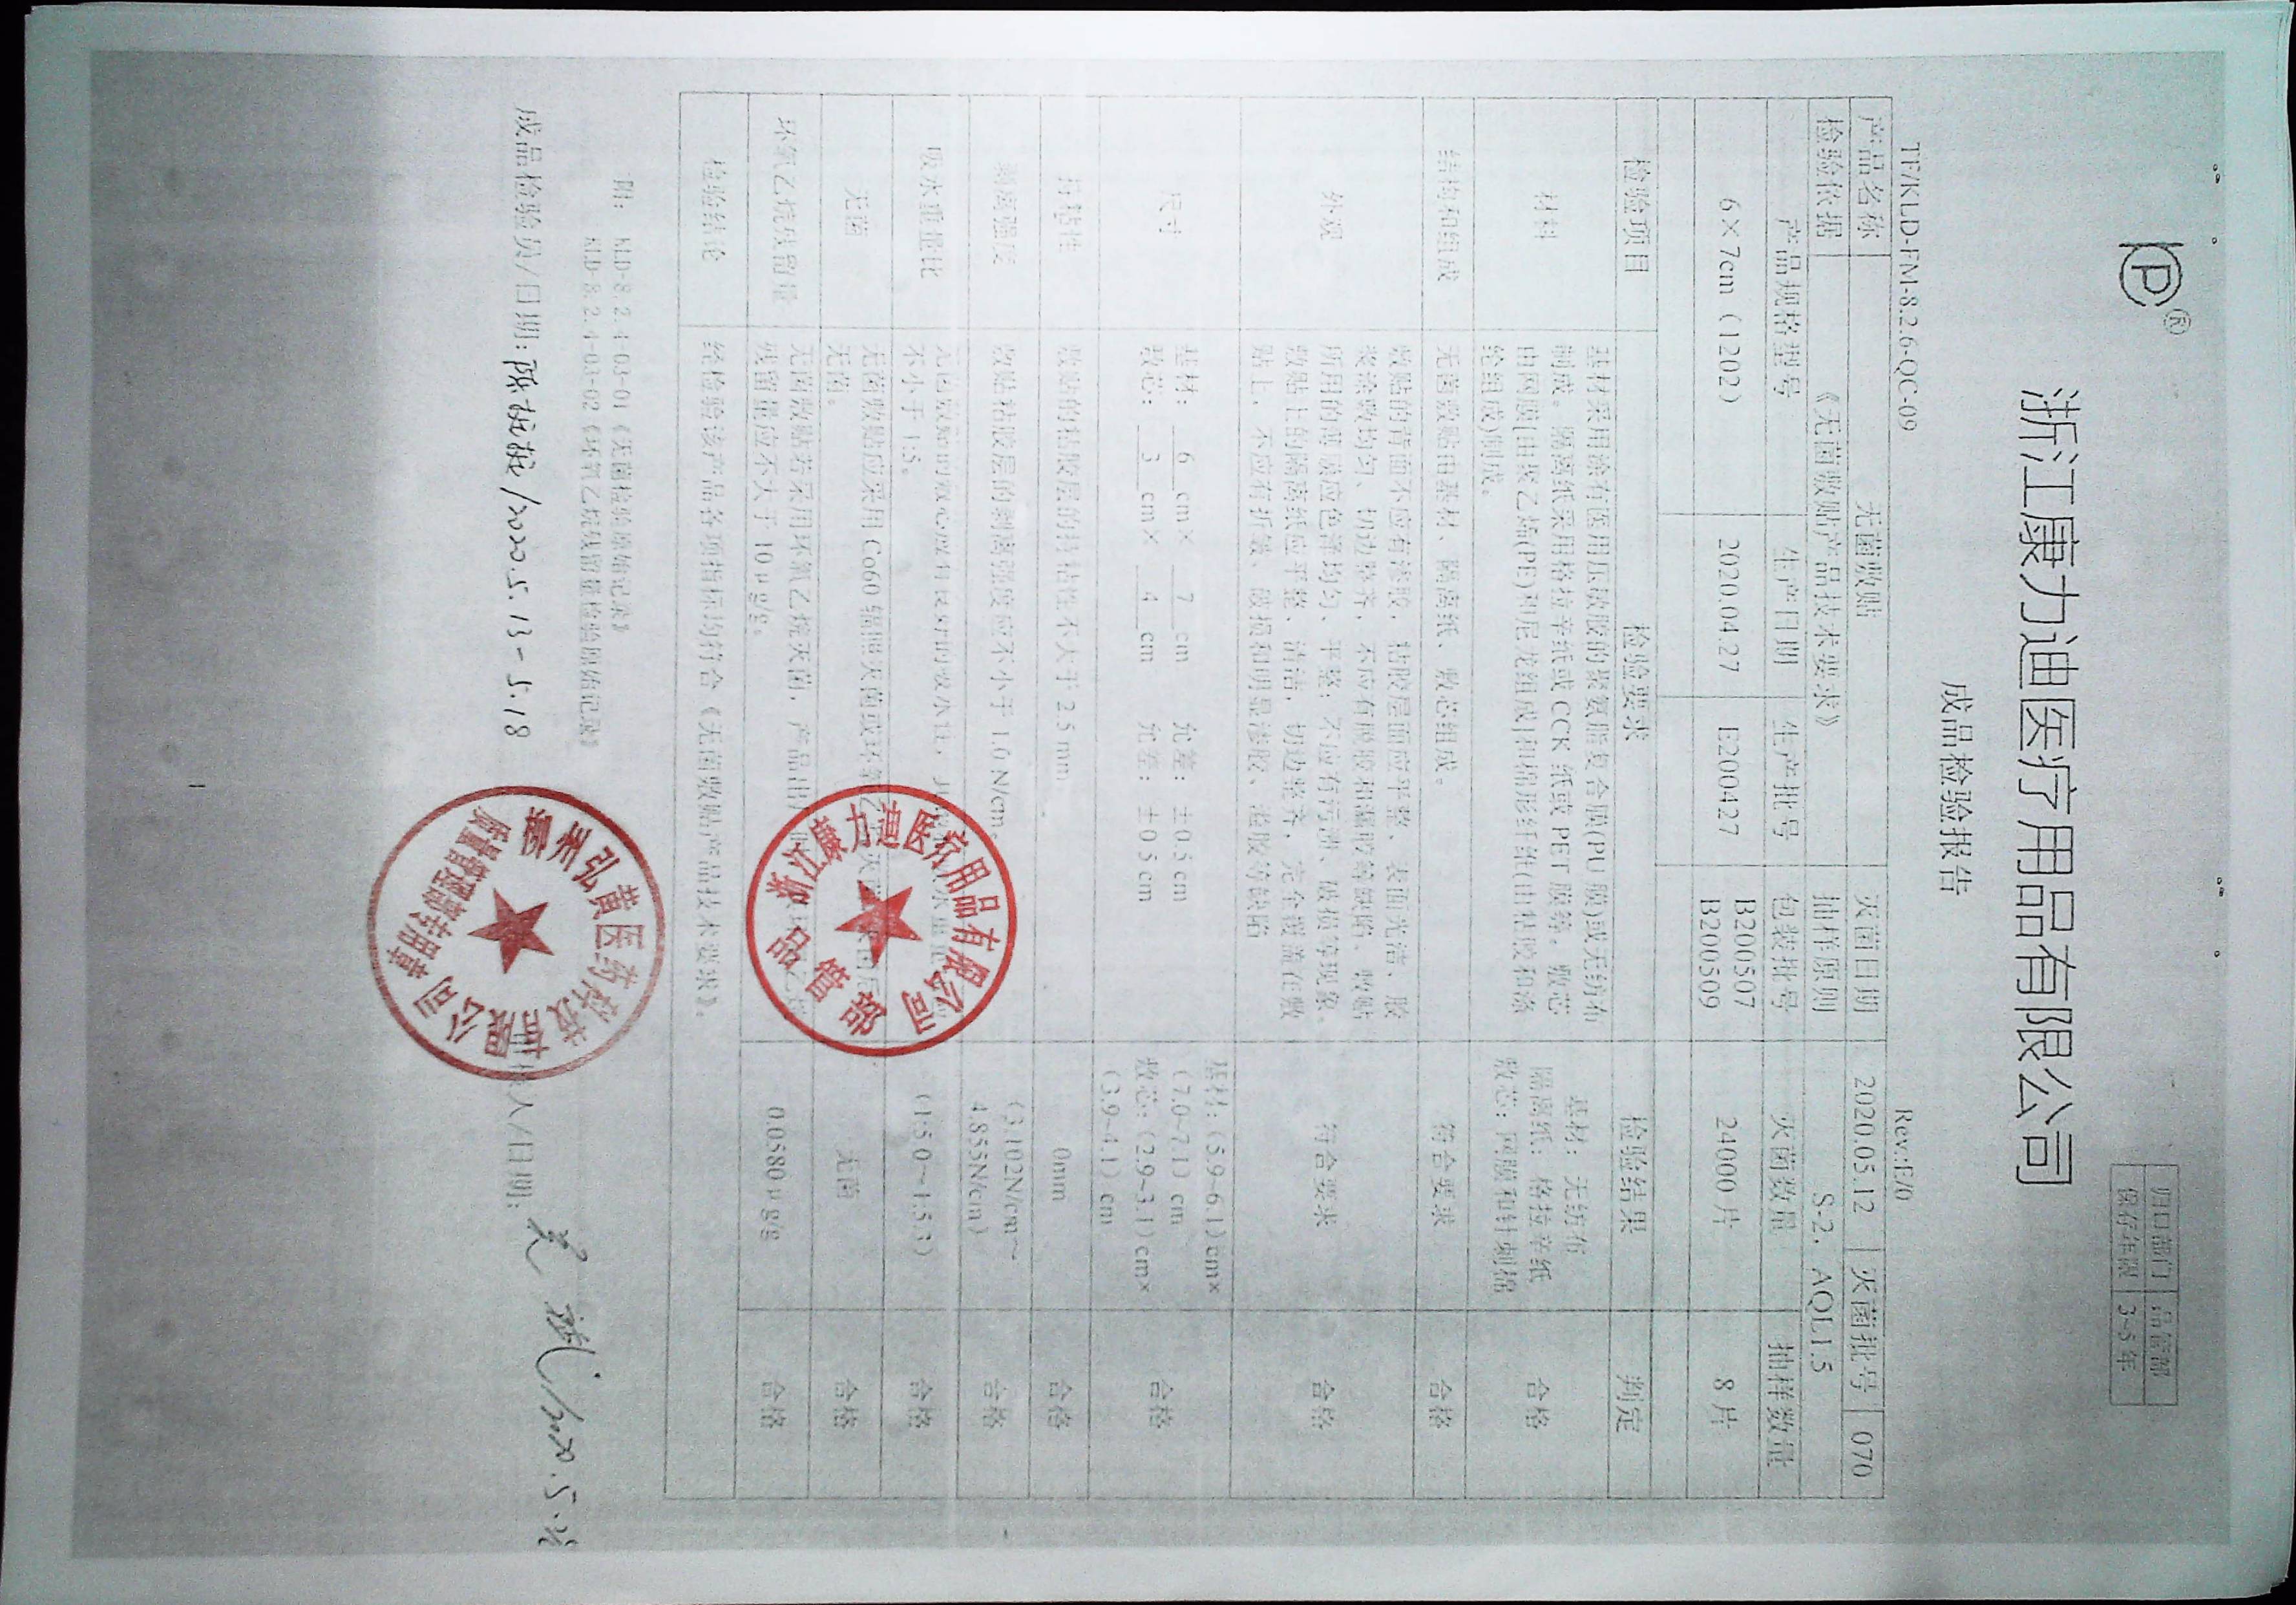 P®
归口部门 品管部
保存年限 3~5年
浙江康力迪医疗用品有限公司
成品检验报告
TF/KLD-FM-8.2.6-QC-09 Rev.:E/0
产品名称 无菌敷贴 灭菌日期 2020.05.12 灭菌批号 070
检验依据 《无菌敷贴产品技术要求》 抽样原则 S-2,AQL1.5
产品规格型号 生产日期 生产批号 包装批号 灭菌数量 抽样数量
6×7cm(1202) 2020.04.27 E200427 B200507 24000片 8片
B200509
检验项目 检验要求 检验结果 判定
材料 基材采用涂有医用压敏胶的聚氨脂复合膜(PU膜)或无纺布 基材:无纺布 合格
制成。隔离纸采用格拉辛纸或CCK纸或PET膜等。敷芯 隔离纸:格拉辛纸
由网膜[由聚乙烯(PE)和尼龙组成]和棉形纤维(由粘胶和涤 敷芯:网膜和针刺棉
纶组成)制成。
结构和组成 无菌敷贴由基材、隔离纸、敷芯组成。 符合要求 合格
外观 敷贴的背面不应有渗胶,粘胶层面应平整、表面光洁、胶 符合要求 合格
浆涂敷均匀、切边整齐,不应有脱胶和漏胶等缺陷。敷贴
所用的基质应色泽均匀、平整;不应有污渍、破损等现象。
敷贴上的隔离纸应平整、清洁,切边整齐,完全覆盖在敷
贴上,不应有折皱、破损和明显渗胶、溢胶等缺陷
尺寸 基材: 6 cm× 7 cm 允差:±0.5cm 基材:(5.9~6.1)cm× 合格
敷芯: 3 cm× 4 cm 允差:±0.5cm (7.0~7.1)cm
敷芯:(2.9~3.1)cm×
(3.9~4.1)cm
持粘性 敷贴的粘胶层的持粘性不大于2.5mm 0mm 合格
剥离强度 敷贴粘胶层的剥离强度应不小于1.0N/cm。 (3.102N/cm~ 合格
4.855N/cm)
吸水重量比 不小于1:5。 (1:5.0~1:5.3) 合格
无菌 无菌敷贴应采用Co60辐照灭菌或环氧乙 无菌 合格
无菌。
环氧乙烷残留量 无菌敷贴若采用环氧乙烷灭菌,产品出 0.0580μg/g 合格
残留量应不大于10μg/g。
检验结论 经检验该产品各项指标均符合《无菌敷贴产品技术要求》。
附: KLD-8.2.4-03-01《无菌检验原始记录》
KLD-8.2.4-03-02《环氧乙烷残留量检验原始记录》
成品检验员/日期: 2020.5.13-5.18 人/日期: /2020.5.
浙江康力迪医疗用品有限公司
品管部
弘黄医药科技有限公司
质量管理部专用章
1